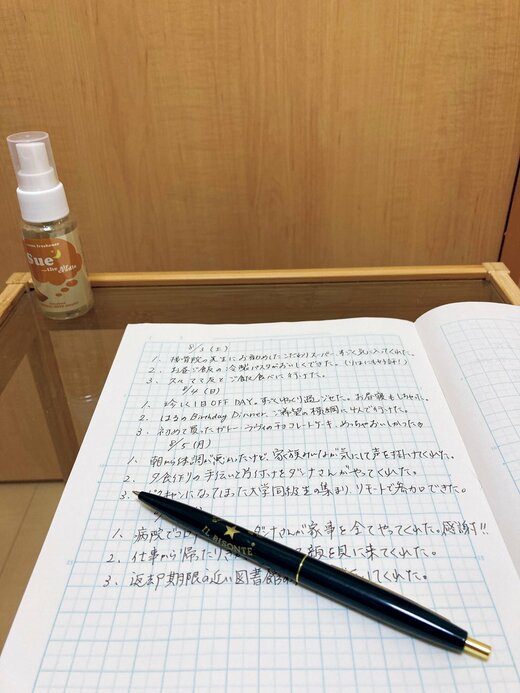 Sue
the
8/3 (土)
1. 接骨院の先生にお勧めしたこだわりスーパー、すごく気に入ってくれた。
2. お昼ご飯の冷製パスタがおいしくできた。
3. 久々に夫とご飯食べに行けた。
8/4 (日)
1. 珍しく1日OFF DAY。すごくゆっくり過ごせた。お昼寝もしちゃった。
2. はるのBirthday Dinner、ご希望の横綱に4人で行けた。
3. 初めて買ったガトー・ラヴィのチョコレートケーキ、めっちゃおいしかった。
8/5 (月)
1. 朝から体調が悪かったけど、家族みんなが気にして声を掛けてくれた。
2. 夕食作りの手伝いと片付けをダンナさんがやってくれた。
3. ドタキャンになってしまった大学同級生の集まり、リモートで参加できた。
1. 病院でコロ ダンナさんが家事を全てやってくれた。感謝!!
2. 仕事から帰ったり て顔を見に来てくれた。
3. 返却期限の近い図書館の してくれた。
IL BISONTE